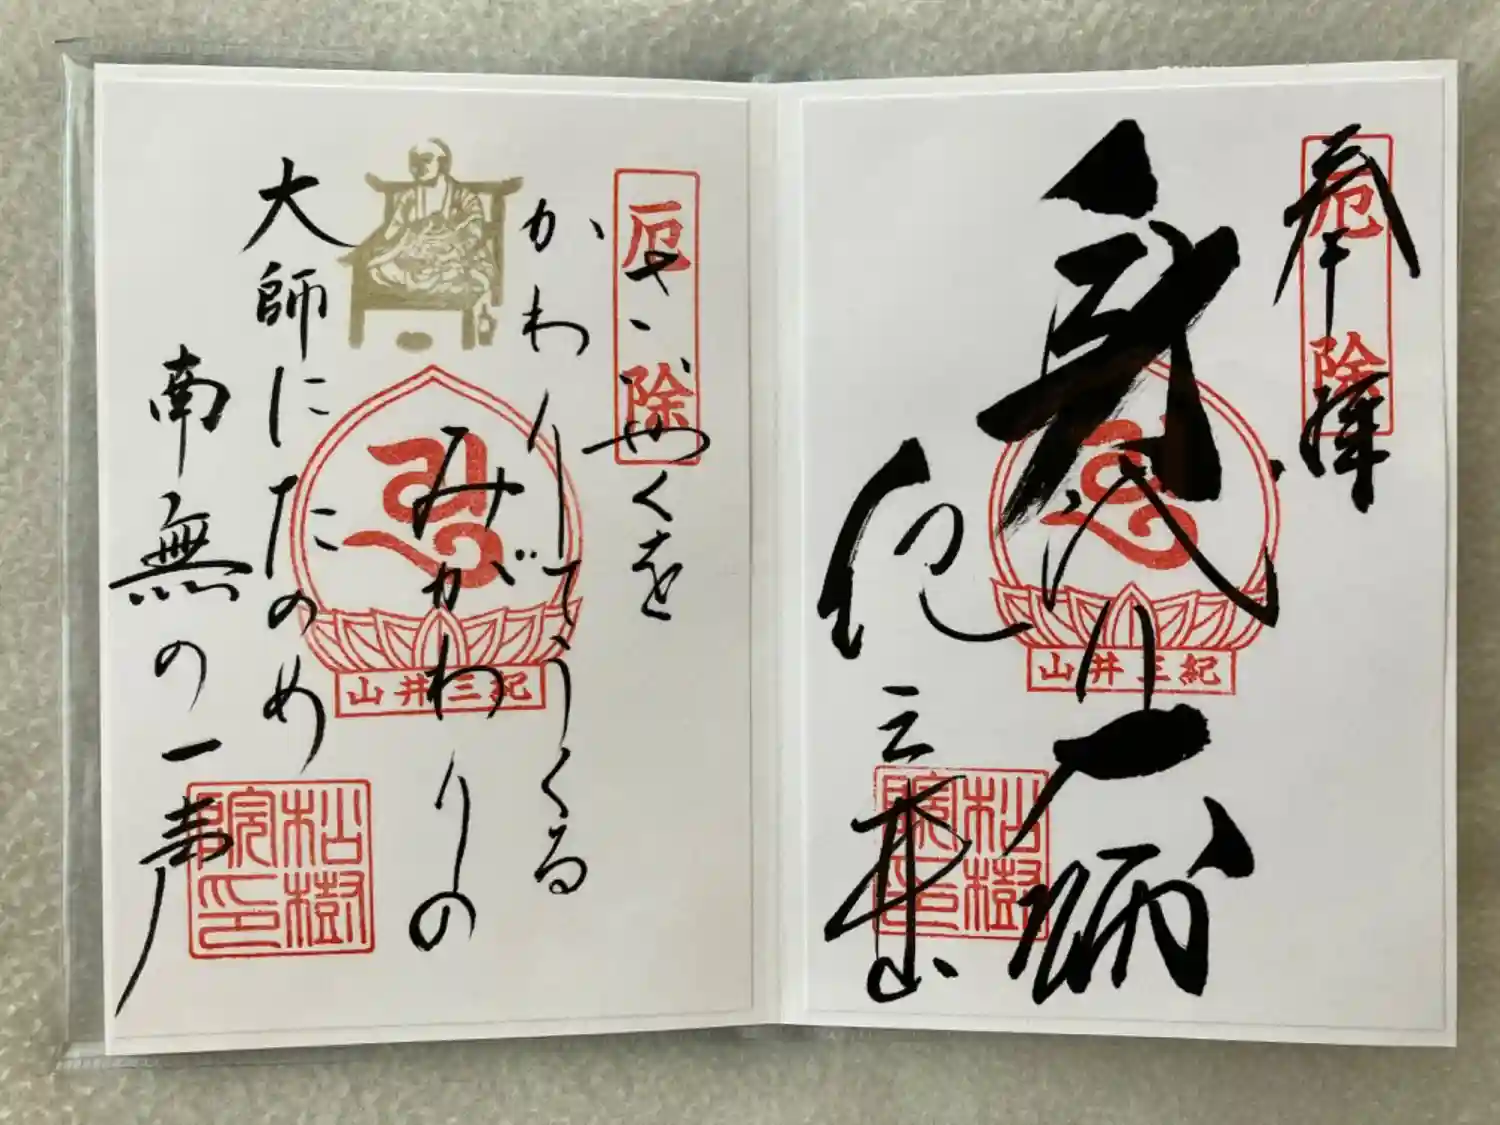 奉拝
厄除
身代り大師
紀三井
山井三紀
松樹院印
厄除
さいやくを
かわりてうくる
みがわりの
大師にたのめ
南無の一声
山井三紀
松樹院印